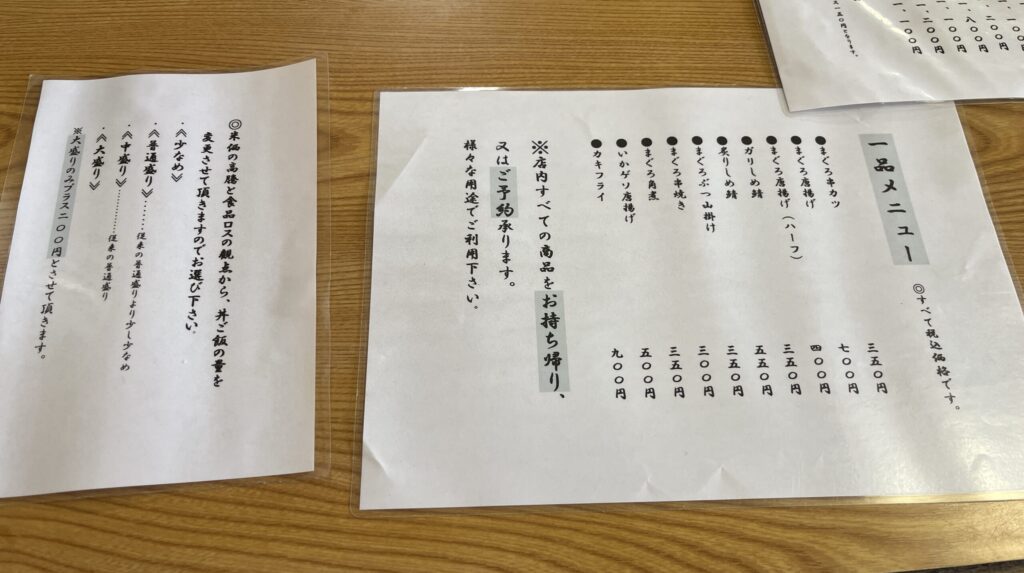 一品メニュー
◎すべて税込価格です。
●まぐろ串カツ 三五〇円
●まぐろ唐揚げ 七〇〇円
●まぐろ唐揚げ(ハーフ) 四〇〇円
●ガリしめ鯖 三五〇円
●炙りしめ鯖 五五〇円
●まぐろぶつ山掛け 三五〇円
●まぐろ串焼き 三〇〇円
●まぐろ角煮 三五〇円
●いかゲソ唐揚げ 五〇〇円
●カキフライ 九〇〇円
※店内すべての商品をお持ち帰り、
又はご予約承ります。
様々な用途でご利用下さい。
◎米価の高騰と食品ロスの観点から、丼ご飯の量を
変更させて頂きますのでお選び下さい。
・《少なめ》
・《普通盛り》……従来の普通盛りより少し少なめ
・《中盛り》…………従来の普通盛り
・《大盛り》
※大盛りのみプラス二〇〇円とさせて頂きます。
八〇〇円
一〇〇円
二〇〇円
一〇〇円
一五〇円となります。